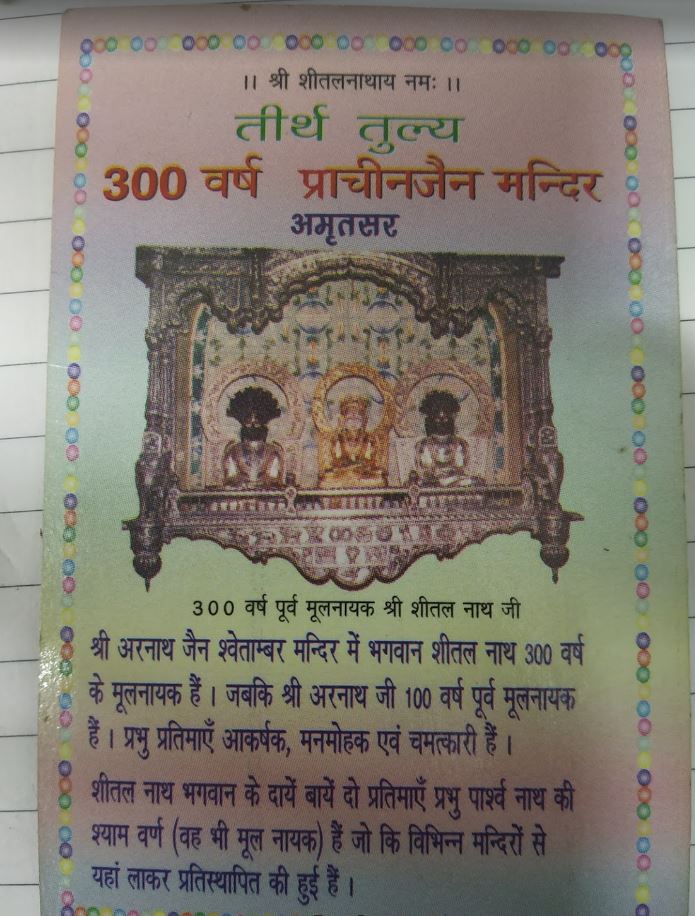 ।। श्री शीतलनाथाय नमः ।।
तीर्थ तुल्य
300 वर्ष प्राचीनजैन मन्दिर
अमृतसर
300 वर्ष पूर्व मूलनायक श्री शीतल नाथ जी
श्री अरनाथ जैन श्वेताम्बर मन्दिर में भगवान शीतल नाथ 300 वर्ष
के मूलनायक हैं । जबकि श्री अरनाथ जी 100 वर्ष पूर्व मूलनायक
हैं । प्रभु प्रतिमाएँ आकर्षक, मनमोहक एवं चमत्कारी हैं ।
शीतल नाथ भगवान के दायें बायें दो प्रतिमाएँ प्रभु पार्श्व नाथ की
श्याम वर्ण (वह भी मूल नायक) हैं जो कि विभिन्न मन्दिरों से
यहां लाकर प्रतिस्थापित की हुई हैं ।